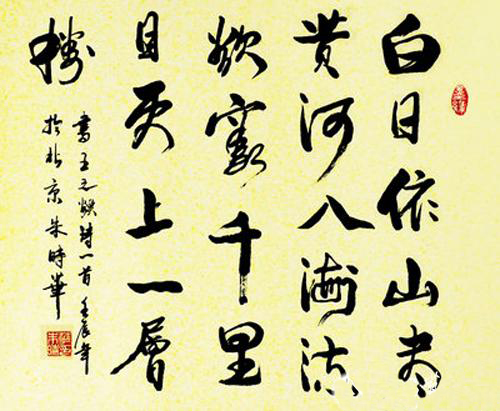 白日依山尽
黄河入海流
欲窮千里
目更上一層
樓
書王之渙詩一首 壬辰年
於北京朱時華